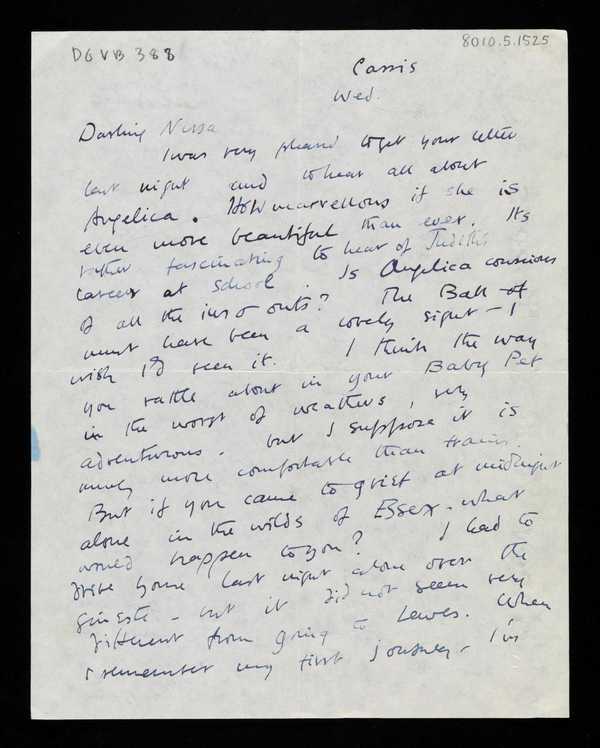 DGVB 388
8010.5.1525
Cassis
Wed.
Darling Nessa
I was very pleased to get your letter
last night and to hear all about
Angelica. How marvellous if she is
even more beautiful than ever. Its
rather fascinating to hear of Judith's
career at school. Is Angelica conscious
of all the ins & outs? The Ball
must have been a lovely sight - I
wish I'd seen it. I think the way
you rattle about in your Baby Pet
in the worst of weathers, very
adventurous. but I suppose it is
much more comfortable than trains.
But if you came to grief at midnight
alone in the wilds of Essex - what
would happen to you? I had to
drive home last night alone over the
Gineste - but it did not seem very
different from going to Lewes. When
I remember my first journey - I'm